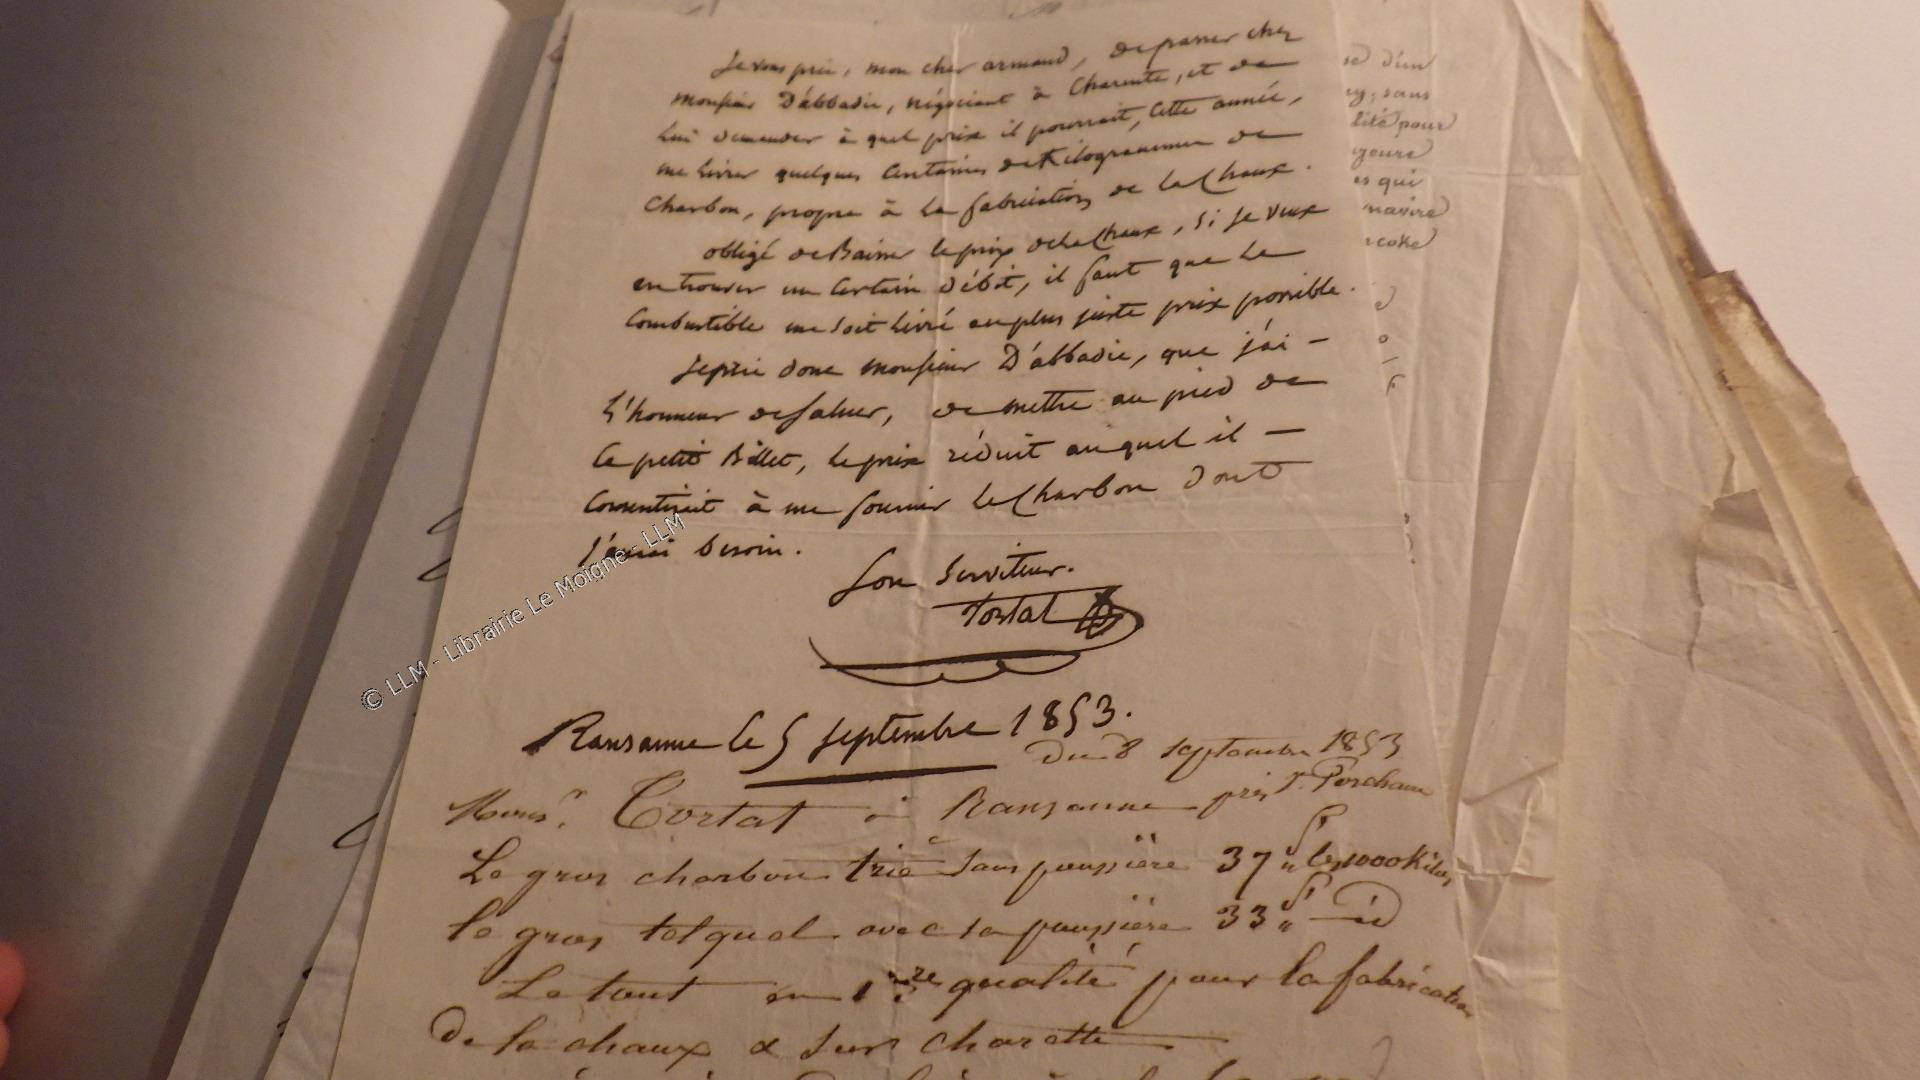 Je vous prie, mon cher armand, de passer chez
monsieur D'abbadie, négociant à Charente, et de
lui demander à quel prix il pourrait, cette année,
me livrer quelques Centaines de Kilogrammes de
Charbon, propre à la fabrication de la Chaux.
obligé de Baisser le prix de la Chaux, si je veux
en trouver un Certain débit, il faut que le
Combustible me soit livré au plus juste prix possible.
Je prie donc monsieur D'abbadie, que j'ai -
l'honneur de saluer, de mettre au pied de
Ce petit Billet, le prix réduit auquel il -
Consentirait à me fournir le Charbon dont
J'aurai besoin.
Son Serviteur.
Tortat
Ransanne le 5 septembre 1853.
Du 8 septembre 1853
Monsr. Tortat à Ransanne près St. Porchaire
Le gros charbon trié sans poussière 37 f " les 1000 Kilos
le gros tel quel avec sa poussière 33 f " - id
Le tout en 1re qualité pour la fabrication
de la chaux & sur charette
se d'un
ny, sans
lité pour
es qui
navire
coke
© LLM - Librairie Le Moigne - LLM